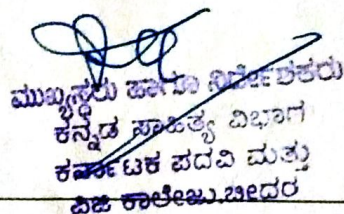 ಮುಖ್ಯಸ್ಥರು ಹಾಗೂ ನಿರ್ದೇಶಕರು
ಕನ್ನಡ ಸಾಹಿತ್ಯ ವಿಭಾಗ
ಕರ್ನಾಟಕ ಪದವಿ ಮತ್ತು
ಪಿಜಿ ಕಾಲೇಜು.ಬೀದರ